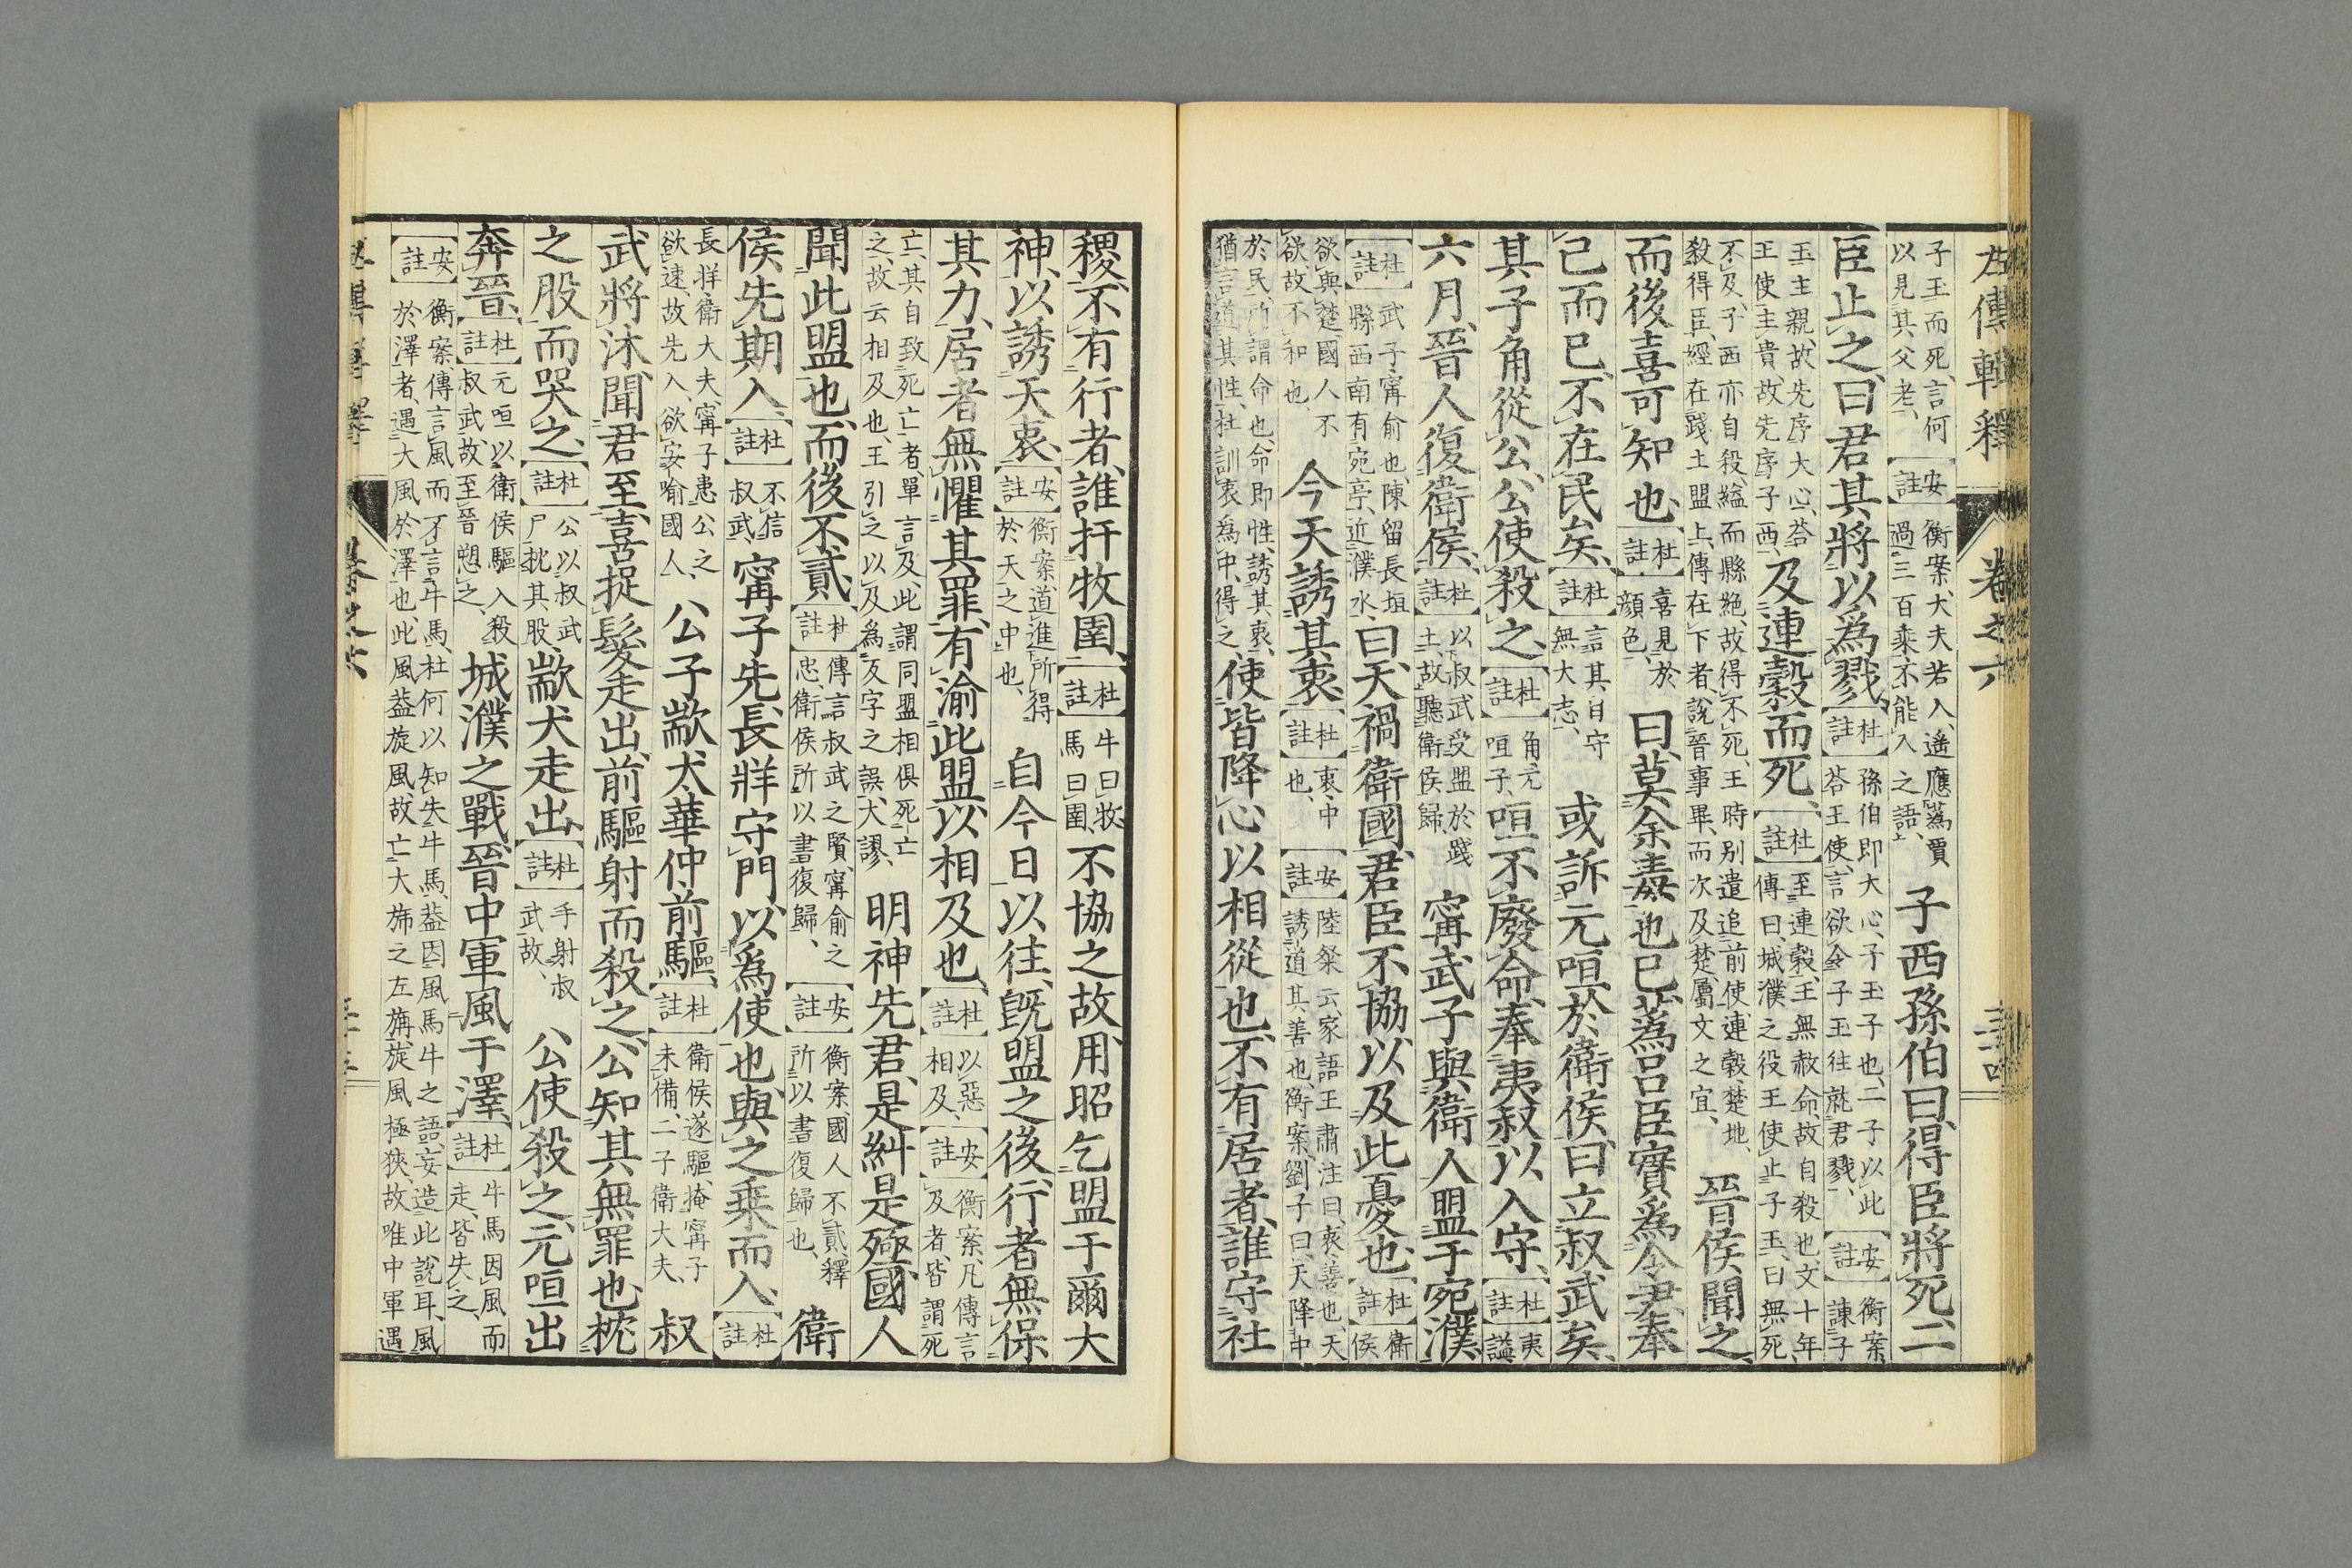 左傳輯釋 卷之六 三十四
子玉而死、言何以見其父老、【安註】衡案、大夫若入、遙應蒍賈過三百乘不能入之語、子西孫伯曰、得臣將死、二
臣止之、曰、君其將以爲戮、【杜註】孫伯即大心、子玉子也、二子以此荅王使、言欲令子玉往就君戮、【安註】衡案、諫子
玉主親、故先序大心、荅王使主貴、故先序子西、及連穀而死、【杜註】至連穀、王無赦命、故自殺也、文十年、傳曰、城濮之役、王使止子玉、曰、無死、
不及、子西亦自殺、縊而縣絶、故得不死、王時别遣追前使、連穀、楚地、殺得臣、經在踐土盟上、傳在下者、說晉事畢、而次及楚、屬文之宜、晉侯聞之、
而後喜可知也、【杜註】喜見於顔色、曰、莫余毒也已、蒍呂臣實爲令尹、奉
己而已、不在民矣、【杜註】言其自守無大志、或訴元咺於衛侯、曰、立叔武矣、
其子角從公、公使殺之、【杜註】角、元咺子、咺不廢命、奉夷叔以入守、【杜註】夷謚
六月、晉人復衛侯、【杜註】以叔武受盟於踐土、故聽衛侯歸、甯武子與衛人盟于宛濮、
【杜註】武子、甯俞也、陳留長垣縣西南有宛亭、近濮水、曰、天禍衛國、君臣不協、以及此憂也、【杜註】衛侯
欲與楚、國人不欲、故不和也、今天誘其衷、【杜註】衷、中也、【安註】陸粲云、家語王肅注曰、衷、善也、天誘道其善也、衡案、劉子曰、天降中
於民、所謂命也、命即性、誘其衷、猶言道其性、杜訓衷爲中、得之、使皆降心以相從也、不有居者、誰守社
稷、不有行者、誰扞牧圉、【杜註】牛曰牧、馬曰圉、不協之故、用昭乞盟于爾大
神、以誘天衷、【安註】衡案、道進所得於天之中也、自今日以往、既盟之後、行者無保
其力、居者無懼其罪、有渝此盟、以相及也、【杜註】以惡相及、【安註】衡案、凡傳言及者、皆謂死
亡、其自致死亡者、單言及、此謂同盟相俱死亡之、故云相及也、王引之以及爲反字之誤、大謬、明神先君、是糾是殛、國人
聞此盟也、而後不貳、【杜註】傳言叔武之賢、甯俞之忠、衛侯所以書復歸、【安註】衡案、國人不貳、釋所以書復歸也、衛
侯先期入、【杜註】不信叔武、甯子先、長牂守門、以爲使也、與之乘而入、【杜註】
長牂、衛大夫、甯子患公之欲速、故先入、欲安喻國人、公子歂犬華仲前驅、【杜註】衛侯遂驅、掩甯子未備、二子衛大夫、叔
武將沐、聞君至、喜、捉髮走出、前驅射而殺之、公知其無罪也、枕
之股而哭之、【杜註】公以叔武尸枕其股、歂犬走出、【杜註】手射叔武故、公使殺之、元咺出
奔晉、【杜註】元咺以衛侯驅入殺叔武、故至晉愬之、城濮之戰、晉中軍風于澤、【杜註】牛馬因風而走、皆失之、
【安註】衡案、傳言風而不言牛馬、杜何以知失牛馬、葢因風馬牛之語、妄造此說耳、風於澤者、遇大風於澤也、此風葢旋風、故亡大旆之左旃、旋風極狹、故唯中軍遇